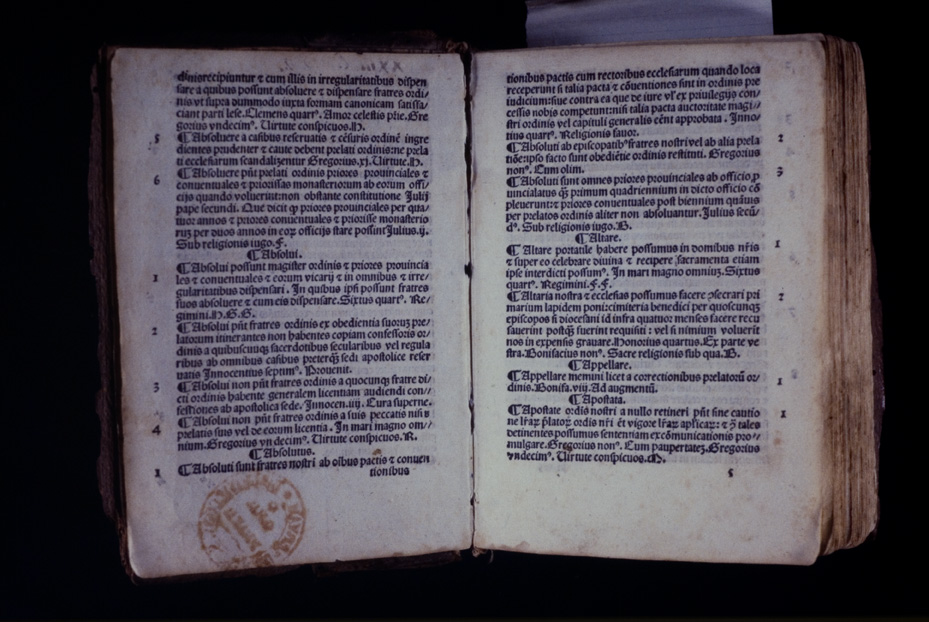 dinis recipiuntur ⁊ cum illis in irregularitatibus dispen
sare a quibus possunt absoluere ⁊ dispensare fratres ordi
nis vt supra dummodo iuxta formam canonicam satisfa⸗
ciant parti lese. Clemens quartꝰ. Amor celestis plie. Gre
gorius vndecimꝰ. Uirtute conspicuos.
5 ¶ Absoluere a casibus reseruatis ⁊ cēsuris ordinē ingre
dientes prudenter ⁊ caute debent prelati ordinis: ne prela
ti ecclesiarum scandalizentur Gregorius.xj. Uirtute.
6 ¶ Absoluere pn̄t prelati ordinis priores prouinciales ⁊
conuentuales ⁊ priorissas monasteriorum ab eorum offi⸗
cijs quando voluerint: non obstante constitutione Julij
pape secundi. Que dicit ꝙ priores prouinciales per qua⸗
tuor annos ⁊ priores conuentuales ⁊ priorisse monasterio
rum per duos annos in eorum officijs stare possint Julius.ij.
Sub religionis iugo. F.
¶ Absolui.
1 ¶ Absolui possunt magister ordinis ⁊ priores prouincia
les ⁊ conuentuales ⁊ eorum vicarij ⁊ in omnibus ⁊ irre⸗
gularitatibus dispensari. In quibus ipsi possunt fratres
suos absoluere ⁊ cum eis dispensare. Sixtus quartꝰ. Re⸗
gimini.
2 ¶ Absolui pn̄t fratres ordinis ex obedientia suorum pre⸗
latorum itinerantes non habentes copiam confessoris or⸗
dinis a quibuscunqꝫ sacerdotibus secularibus vel regula
ribus ab omnibus casibus preterqꝫ sedi apostolice reser
uatis Innocentius septimꝰ. Prouenit.
3 ¶ Absolui non pn̄t fratres ordinis a quocunqꝫ fratre di⸗
cti ordinis habente generalem licentiam audiendi con⸗
fessiones ab apostolica sede. Innocen.iiij. Cura superne.
4 ¶ Absolui non pn̄t fratres ordinis a suis peccatis nisi a
prelatis suis vel de eorum licentia. In mari magno om⸗
nium. Gregorius vndecimꝰ. Uirtute conspicuos. R.
¶ Absolutus.
1 ¶ Absoluti sunt fratres nostri ab oībus pactis ⁊ conuen
tionibus
tionibus pactis cum rectoribus ecclesiarum quando loca
receperunt si talia pacta ⁊ cōuentiones sint in ordinis pre
iudicium: siue contra ea que de iure vel ex priuilegijs con⸗
cessis nobis competunt: nisi talia pacta auctoritate magi⸗
stri ordinis vel capituli generalis eēnt approbata. Inno⸗
tius quartꝰ. Religionis fauor.
2 ¶ Absoluti ab episcopatibꝰ fratres nostri vel ab alia prela
tiōe: ipso facto sunt obediētie ordinis restituti. Gregorius
nonꝰ. Cum olim.
3 ¶ Absoluti sunt omnes priores prouinciales ab officio p
uincialatus qꝫ primum quadriennium in dicto officio cō
pleuerunt: ⁊ priores conuentuales post biennium quāuis
per prelatos ordinis aliter non absoluantur. Julius secū⸗
dꝰ. Sub religionis iugo. B.
¶ Altare.
1 ¶ Altare portatile habere possumus in domibus nr̄is
⁊ super eo celebrare diuina ⁊ recipere sacramenta etiam
ipse interdicti possumꝰ. In mari magno omnium. Sixtus
quartꝰ. Regimini. F.F.
2 ¶ Altaria nostra ⁊ ecclesias possumus facere ꝯsecrari pri
marium lapidem poni: cimiteria benedici per quoscunqꝫ
episcopos si diocesani id infra quattuor menses facere recu
sauerint postqꝫ fuerint requisiti: vel si nimium voluerit
nos in expensis grauare. Honorius quartus. Ex parte ve
stra. Bonifacius nonꝰ. Sacre religionis sub qua. B.
¶ Appellare.
1 ¶ Appellare nemini licet a correctionibus prelatorum or⸗
dinis. Bonifa.viij. Ad augmentū.
¶ Apostata.
1 ¶ Apostate ordīs nostri a nullo retineri pn̄t sine cautio
ne lr̄arum p̄latorum ordīs nr̄i et vigore lr̄arum aplicarum: ⁊ tales
detinentes possumus sententiam excōmunicationis pro⸗
mulgare. Gregorius nonꝰ. Cum paupertatem. Gregorius
vndecimꝰ. Uirtute conspicuos.
5